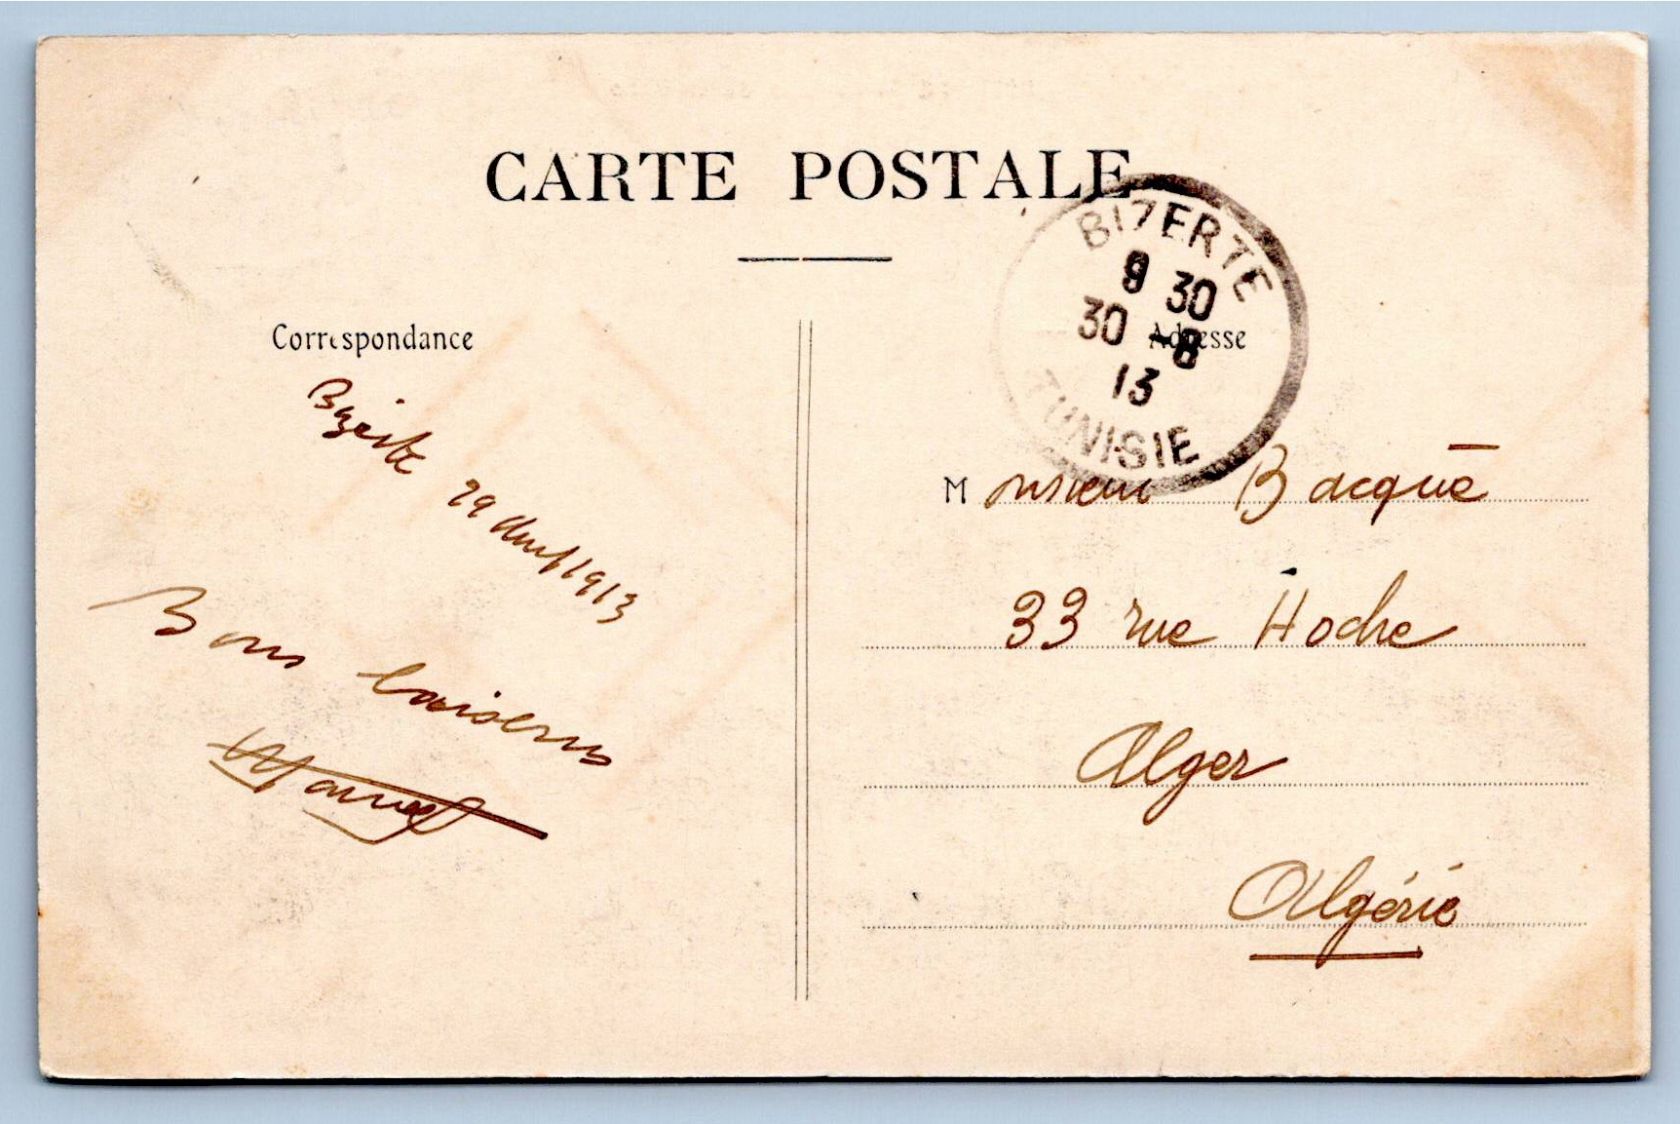 CARTE POSTALE
BIZERTE
9 30
30 -8
13
TUNISIE
Correspondance
Adresse
Bizerte 29 août 1913
Bons baisers
Monsieur Bacqué
33 rue Hoche
Alger
Algérie